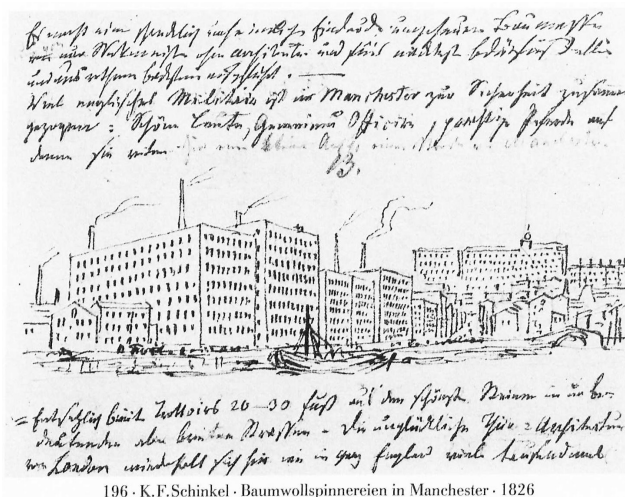 Es macht einen schrecklich unheimlichen Eindruck ungeheure Baumassen
von nur Werkmeistern ohne Architectur und fürs nackteste Bedürfniß allein
und aus rothem backstein aufgeführt. —
Viel englisches Militair ist in Manchester zur Sicherheit zusammen
gezogen: Schöne Leute, Gemeine u Officire, prächtige Pferde auf
denen sie reiten
13.
= Entsetzlich breite Trottoirs 20–30 Fuß aus den schönst. Steinen in unbe-
deutenden aber breiten Strassen – Die unglückliche Thür-Architectur
von London wiederholt sich hier wie in ganz England viele tausendmal
196 · K.F.Schinkel · Baumwollspinnereien in Manchester · 1826